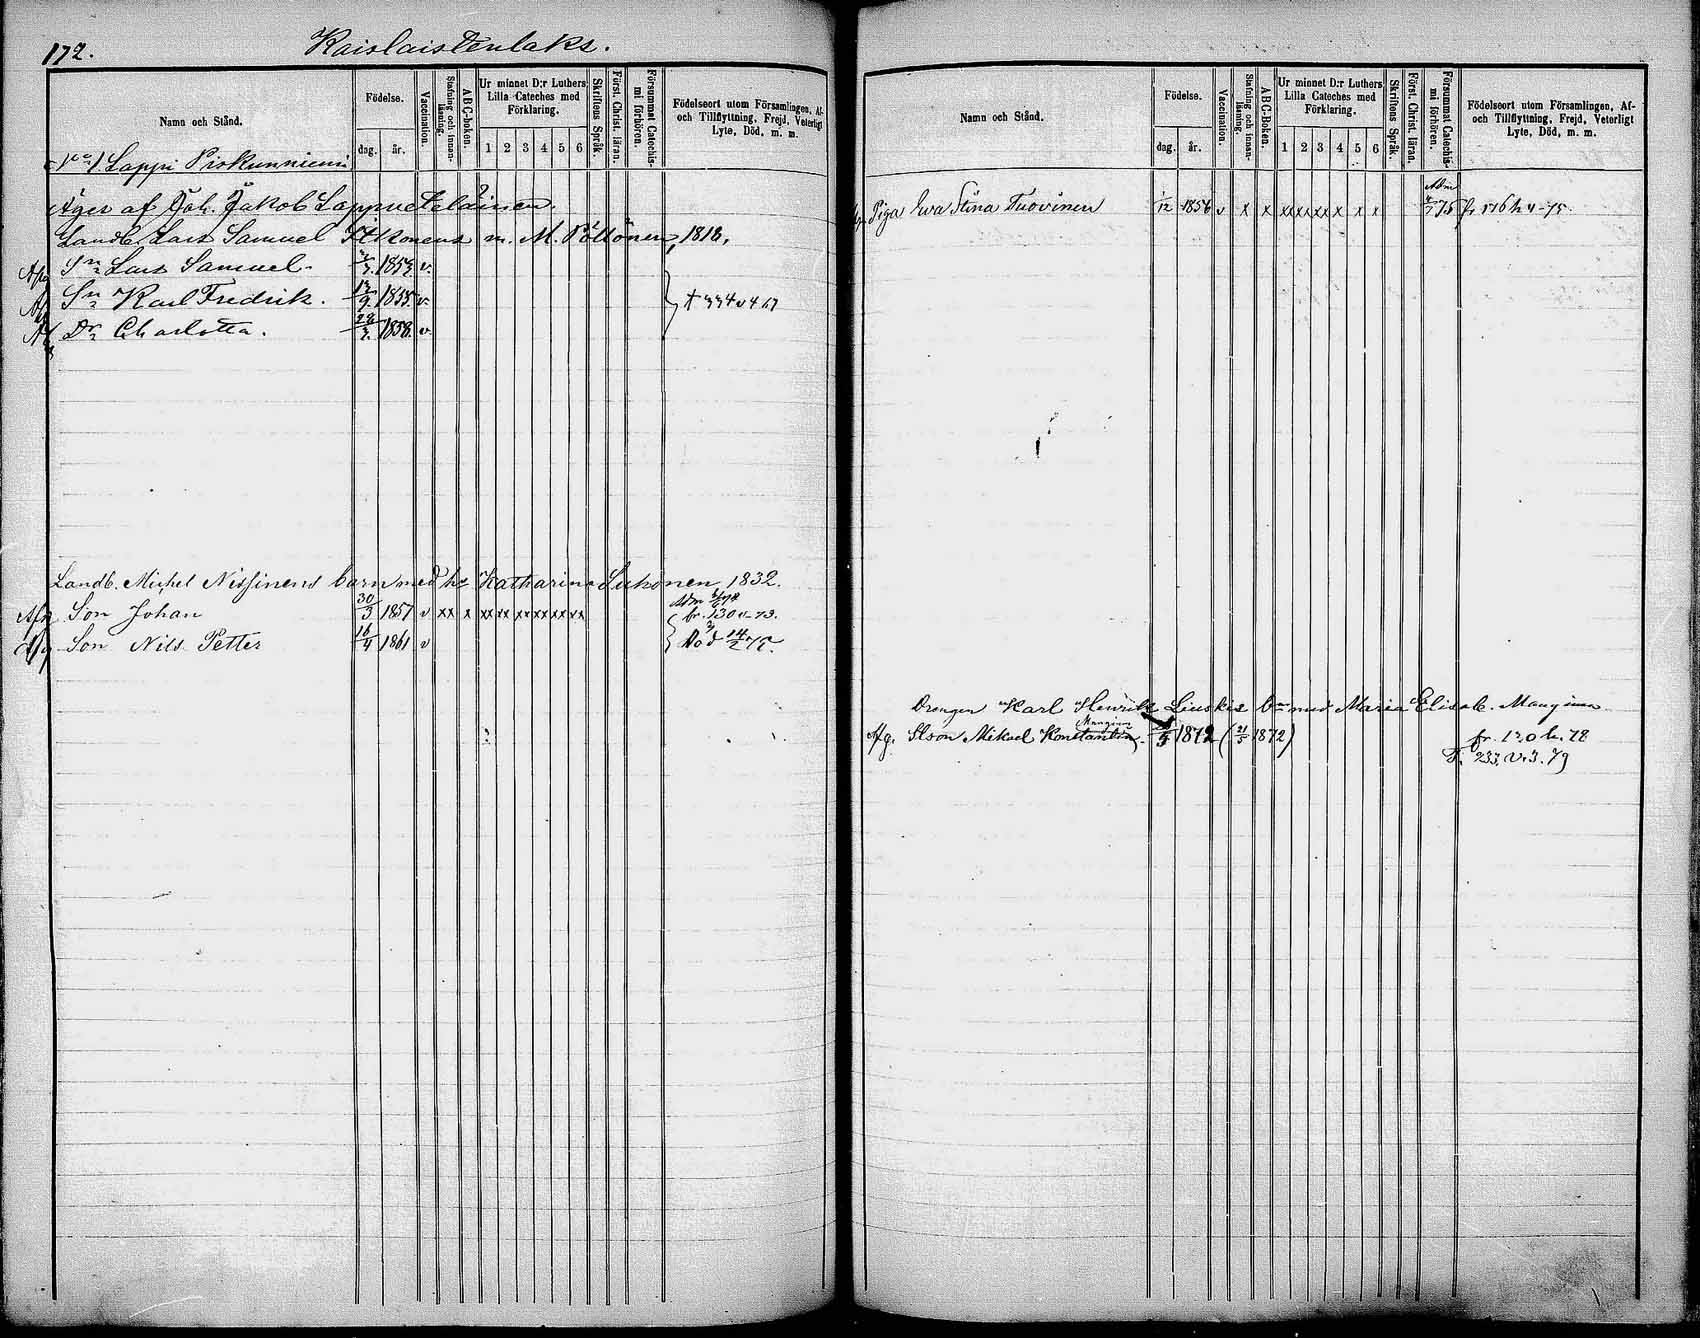 172.
Kaislaistenlaks.
Namn och Stånd.
Födelse.
dag.
år.
Vaccination.
Stafning och innan-
läsning.
ABC-boken.
Ur minnet D:r Luthers
Lilla Cateches med
Förklaring.
1 2 3 4 5 6
Skriftens Språk.
Först. Christ. läran.
Försummat Catechis-
mi förhören.
Födelseort utom Församlingen, Af-
och Tillflyttning, Frejd, Veterligt
Lyte, Död, m. m.
No 1 Lappi Piskunniemi
Äger af Joh. Jakob Lappveteläinen.
Landb. Lars Samuel Itkonens m. M. Pöllönen, 1818,
Sn Lars Samuel. 1853. v.
Sn Karl Fredrik. 1855. v.
Dr Charlotta. 28 1858. v.
Landb. Michel Nissinens barn med h Katharina Sutonen 1832.
Afg Son Johan 30/3 1857 v xx x xx xx xx xx xx xx fr. 130 v-73.
Afg Son Nils Petter 16/4 1861 v Död 14/2
Namn och Stånd.
Födelse.
dag.
år.
Vaccination.
Stafning och innan-
läsning.
ABC-Boken.
Ur minnet D:r Luthers
Lilla Cateches med
Förklaring.
1 2 3 4 5 6
Skriftens Språk.
Först. Christ. läran.
Försummat Catechis-
mi förhören.
Födelseort utom Församlingen, Af-
och Tillflyttning, Frejd, Veterligt
Lyte, Död, m. m.
Piga Eva Stina Tuovinen 1/12 1856 v x x xx xx xx x x x 75 fr 176 h 4-75
Drengen Karl Henrik Liuskis bn med Maria Elisab. Manginen
Manginen
Afg. Slson Mikael Konstantin. 1872 (21/5 1872) fr. 120 h. 78
T. 233. v.3. 79